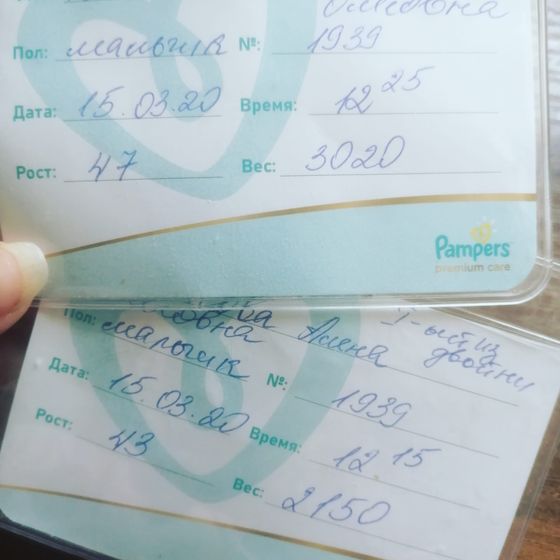 Пол: мальчик №: 1939
Дата: 15.03.20 Время: 12 25
Рост: 47 Вес: 3020
Pampers
premium care
Алина I-ый из
двойни
Пол: мальчик №: 1939
Дата: 15.03.20 Время: 12 15
Рост: 43 Вес: 2150